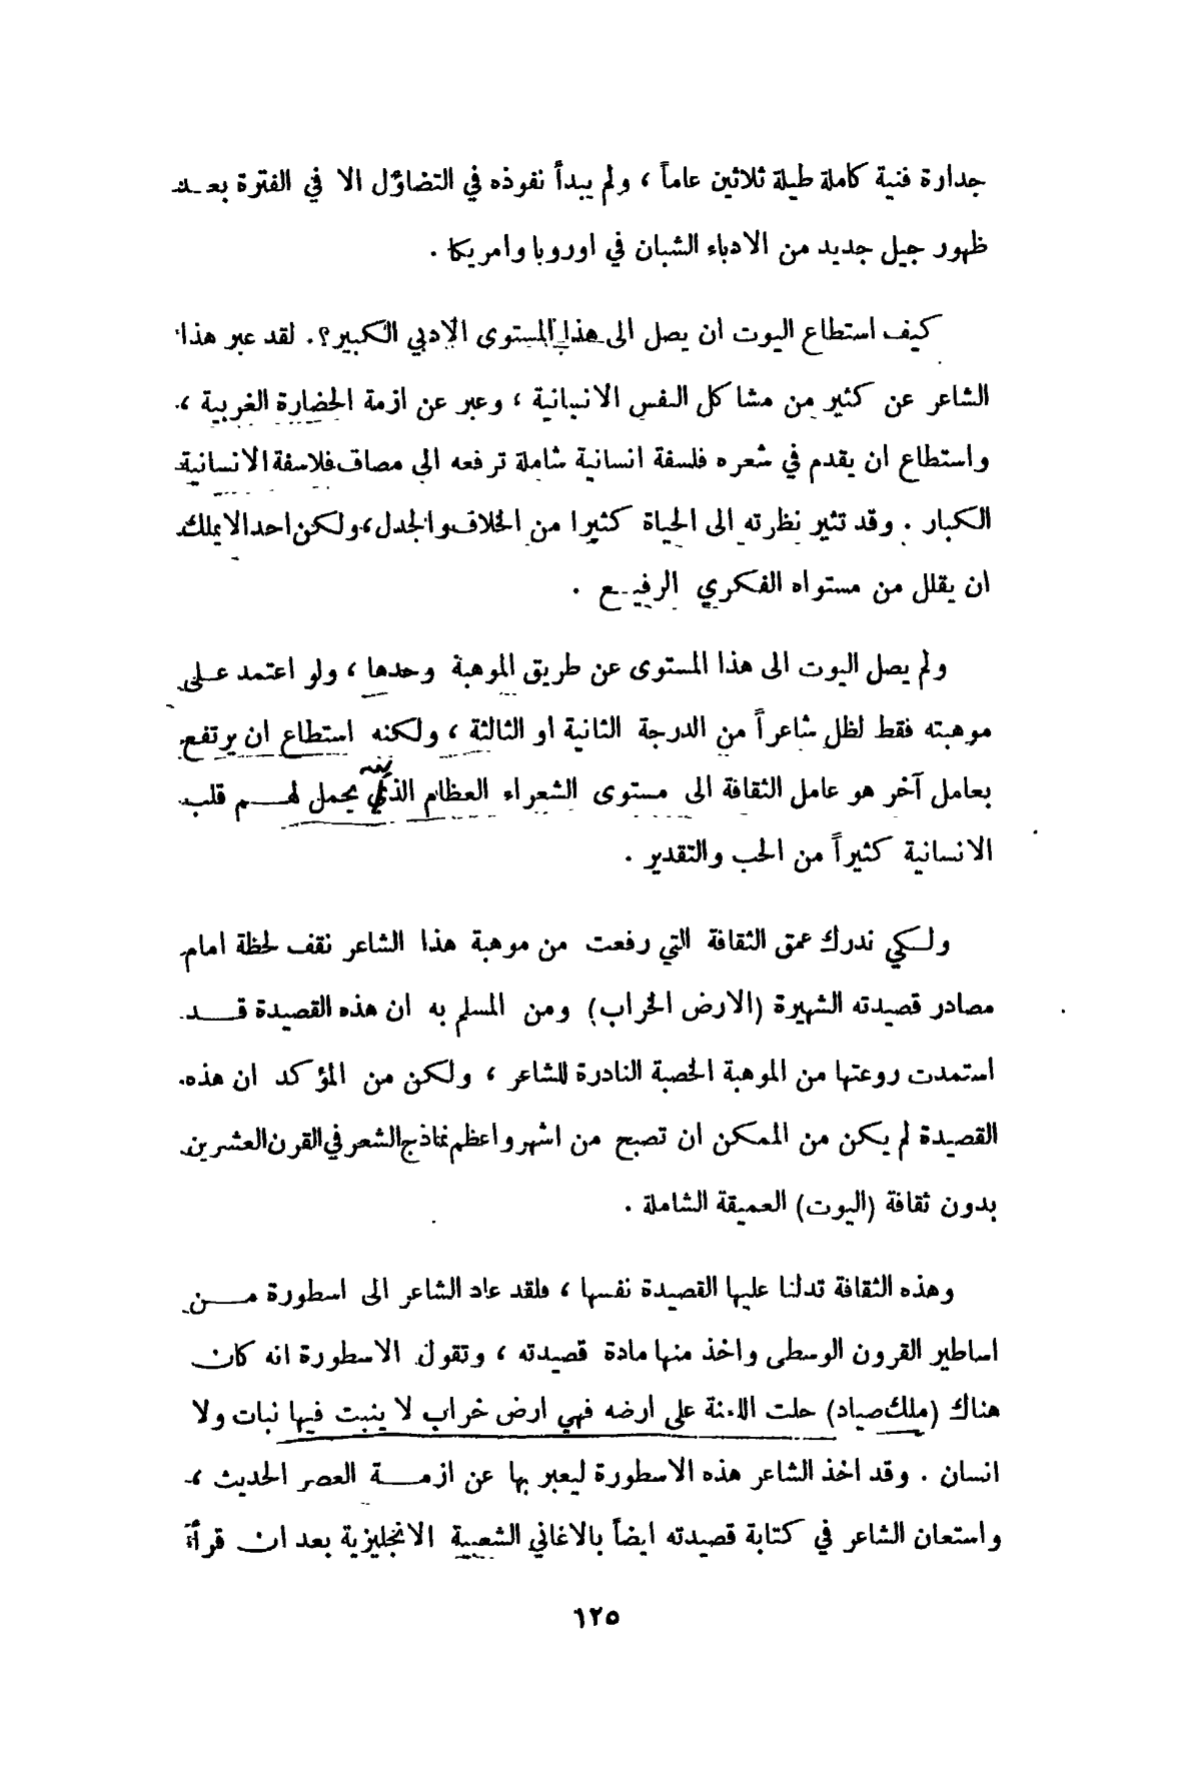 جدارة فنية كاملة طيلة ثلاثين عاماً ، ولم يبدأ نفوذه في التضاؤل الا في الفترة بعد
ظهور جيل جديد من الادباء الشبان في اوروبا وامريكا .
كيف استطاع اليوت ان يصل الى هذا المستوى الادبي الكبير؟. لقد عبر هذا
الشاعر عن كثير من مشاكل النفس الانسانية ، وعبر عن ازمة الحضارة الغربية ،
واستطاع ان يقدم في شعره فلسفة انسانية شاملة ترفعه الى مصاف فلاسفة الانسانية
الكبار . وقد تثير نظرته الى الحياة كثيرا من الخلاف والجدل ، ولكن احدا لا يملك
ان يقلل من مستواه الفكري الرفيع .
ولم يصل اليوت الى هذا المستوى عن طريق الموهبة وحدها ، ولو اعتمد على
موهبته فقط لظل شاعراً من الدرجة الثانية او الثالثة ، ولكنه استطاع ان يرتفع
بعامل آخر هو عامل الثقافة الى مستوى الشعراء العظام الذين يحمل لهم قلب
الانسانية كثيراً من الحب والتقدير .
ولكي ندرك عمق الثقافة التي رفعت من موهبة هذا الشاعر نقف لحظة امام
مصادر قصيدته الشهيرة (الارض الخراب) ومن المسلم به ان هذه القصيدة قد
استمدت روعتها من الموهبة الخصبة النادرة للشاعر ، ولكن من المؤكد ان هذه
القصيدة لم يكن من الممكن ان تصبح من اشهر واعظم نماذج الشعر في القرن العشرين
بدون ثقافة (اليوت) العميقة الشاملة .
وهذه الثقافة تدلنا عليها القصيدة نفسها ، فلقد عاد الشاعر الى اسطورة من
اساطير القرون الوسطى واخذ منها مادة قصيدته ، وتقول الاسطورة انه كان
هناك (ملك صياد) حلت اللعنة على ارضه فهي ارض خراب لا ينبت فيها نبات ولا
انسان . وقد اخذ الشاعر هذه الاسطورة ليعبر بها عن ازمة العصر الحديث ،
واستعان الشاعر في كتابة قصيدته ايضاً بالاغاني الشعبية الانجليزية بعد ان قرأ
١٢٥